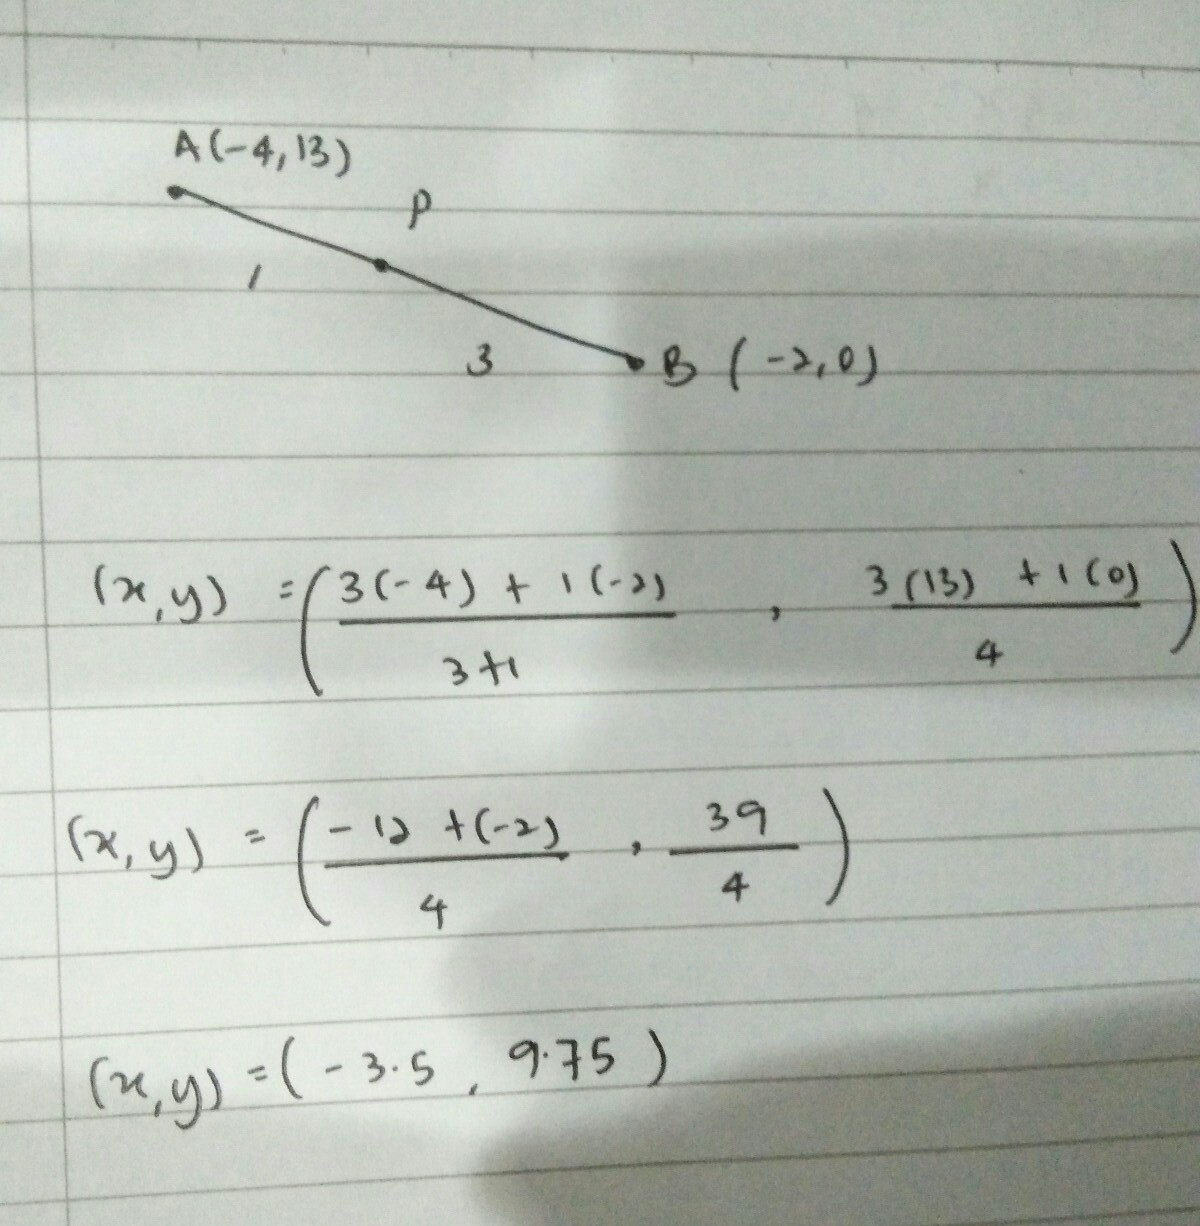 A(-4,13)
P
1
3
B (-2,0)
(x,y) = ( 3(-4) + 1(-2) / 3+1 , 3(13) + 1(0) / 4 )
(x,y) = ( -12 +(-2) / 4 , 39 / 4 )
(x,y) = ( -3.5 , 9.75 )